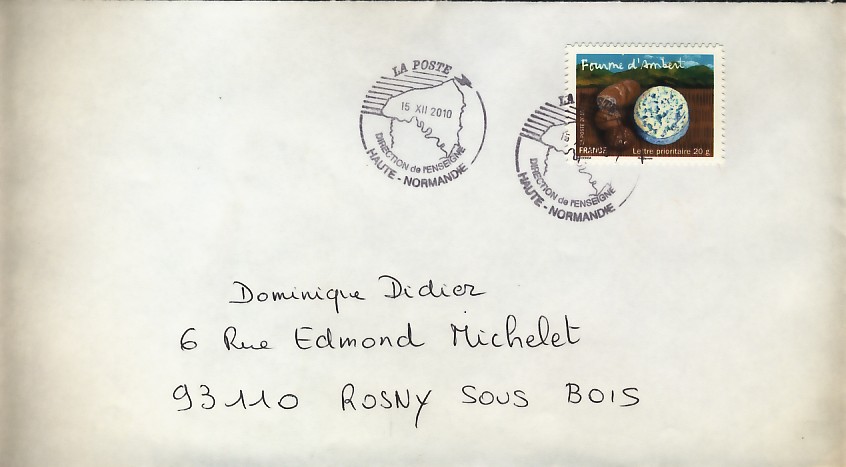 LA POSTE
15 XII 2010
DIRECTION de l'ENSEIGNE
HAUTE - NORMANDIE
Fourme d'Ambert
FRANCE
Lettre prioritaire 20 g
LA
15
DIRECTION de l'ENSEIGNE
HAUTE - NORMANDIE
Dominique Didier
6 Rue Edmond Michelet
93110 ROSNY SOUS BOIS